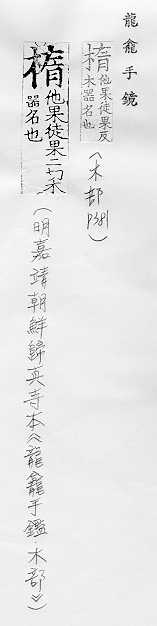 龍龕手鏡
楕他果徒果反
木器名也
(木部P381)
楕他果徒果二切木
器名也
(明嘉靖朝鮮歸真寺本《龍龕手鑑·木部》)